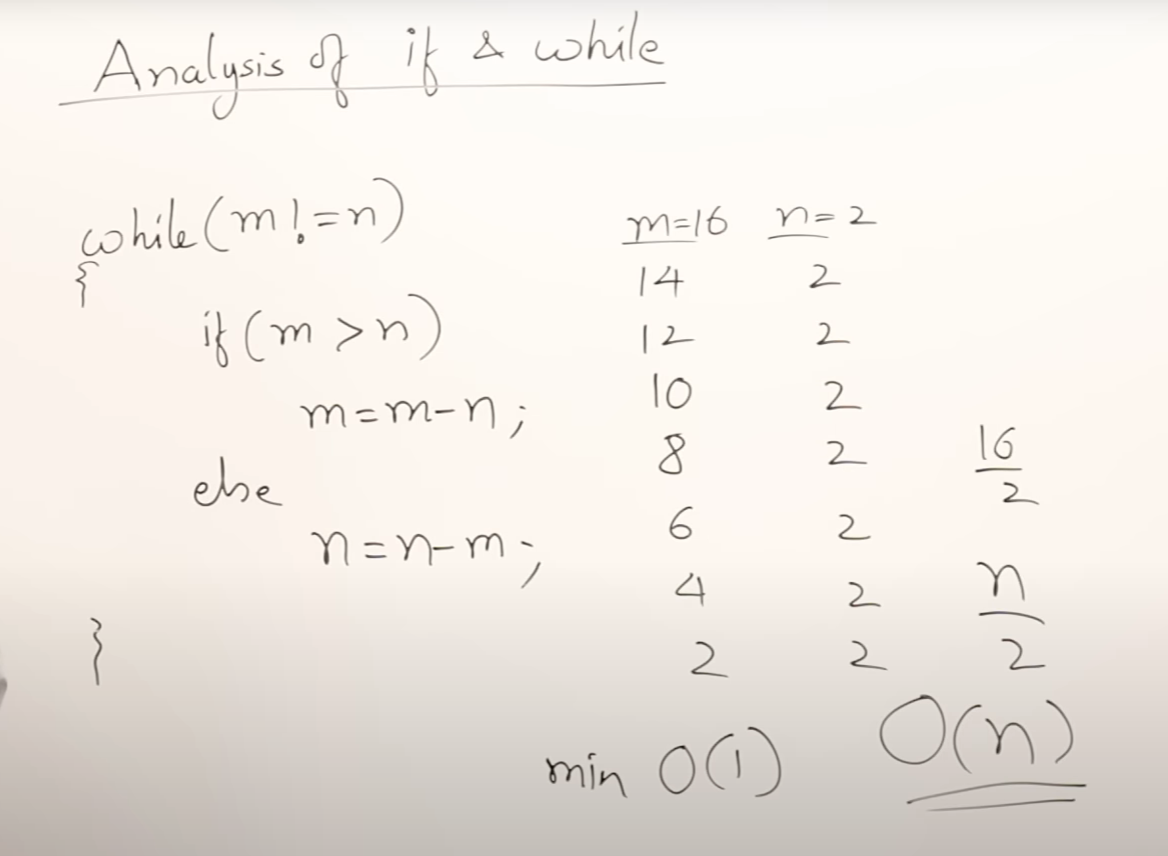 Analysis of if & while
while(m!=n)
{
if(m>n)
m=m-n;
else
n=n-m;
}
m=16 n=2
14 2
12 2
10 2
8 2
6 2
4 2
2 2
16
2
n
2
min O(1) O(n)